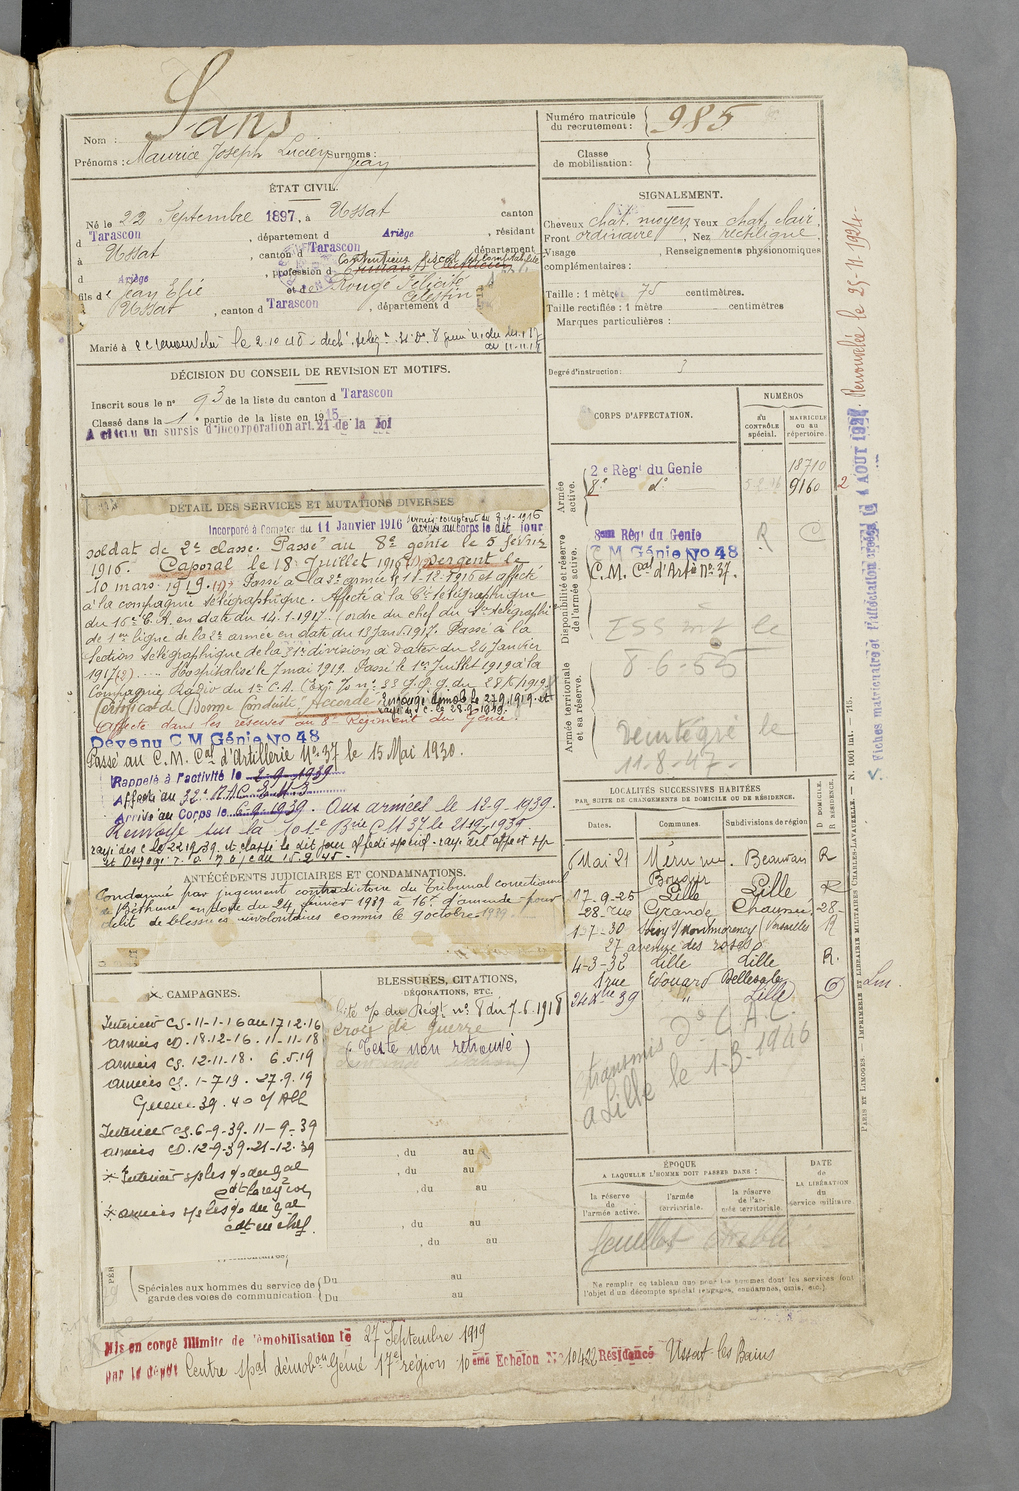 Nom : Sans
Prénoms : Maurice Joseph Lucien Surnoms : Jean
Numéro matricule du recrutement : 985
Classe de mobilisation :
ÉTAT CIVIL.
Né le 22 Septembre 1897, à Ussat canton
d Tarascon, département d Ariège, résidant
à Ussat, canton d Tarascon département
d Ariège, profession d
fils d e Jean Elie et de Rouge Félicité Célestine
Ussat, canton d Tarascon, département d
Marié à
SIGNALEMENT.
Cheveux chat. moyen Yeux chat. clair
Front ordinaire, Nez rectiligne
Visage , Renseignements physionomiques
complémentaires :
Taille : 1 mètre 75 centimètres.
Taille rectifiée : 1 mètre centimètres
Marques particulières :
Degré d'instruction : 3
DÉCISION DU CONSEIL DE REVISION ET MOTIFS.
Inscrit sous le no 93 de la liste du canton d Tarascon
Classé dans la 1e partie de la liste en 1915
un sursis d'incorporation art. 21 de la loi
DÉTAIL DES SERVICES ET MUTATIONS DIVERSES
Incorporé à compter du 11 Janvier 1916 arrivé au corps le dit jour
soldat de 2e classe. Passé au 8e génie le 5 février
1916. Caporal le 18 Juillet 1916 Sergent le
10 mars 1919. Passé à la 2e armée le 18-12-1916 et affecté
à la compagnie télégraphique. Affecté à la Cie télégraphique
du 16e C.A. en date du 14.1.1917. (ordre du chef du Sce télégraphi
de 1re ligne de la 2e armée en date du 13 Jan. 1917. Passé à la
Section télégraphique de la 31e division à dater du 24 Janvier
1917 Hospitalisé le 7 mai 1919. Passé le 1er Juillet 1919 à la
Compagnie Radio du 1er C.A.
Certificat de Bonne Conduite "Accordé"
Affecté dans les réserves au 8e Régiment du Génie.
Devenu C M Génie No 48
Passé au C.M. Cal d'Artillerie No 37 le 15 Mai 1930.
Rappelé à l'activité le 2-9-1939
Affecté au 32e
Arrivé au Corps le 6-9-1939. Aux armées le 12-9-1939.
Renvoyé sur la 101e Brie CM 37 le 21-12-1939.
CORPS D'AFFECTATION.
NUMÉROS
au contrôle spécial.
MATRICULE ou au répertoire.
Armée active.
2e Régt du Genie 18710
8e do 9160
Disponibilité et réserve de l'armée active.
8eme Régt du Genie R C
C M Génie No 48
C.M. Cal d'Artie No 37.
Armée territoriale et sa réserve.
8-6-55
Réintégré le
11-8-47-
ANTÉCÉDENTS JUDICIAIRES ET CONDAMNATIONS.
Condamné par jugement contradictoire du tribunal correctionnel
de Béthune en date du 24 Janvier 1939 à 16f d'amende pour
délit de blessures involontaires commis le 9 octobre 1939
LOCALITÉS SUCCESSIVES HABITÉES
PAR SUITE DE CHANGEMENTS DE DOMICILE OU DE RÉSIDENCE.
Dates. Communes. Subdivisions de région D. DOMICILE. R. RÉSIDENCE.
6 Mai 21 Méru Beauvais R
17-9-25 Lille Lille R
28 rue Grande Chaussée 28-
1-7-30 Soisy s/ Montmorency Versailles R
27 avenue des roses
4-3-32 Lille Lille R.
1 rue Edouard Delesalle
24 Xbre 39 " Lille D
transmis do C.A.C.
a Lille le 1-3-1946
CAMPAGNES.
Intérieur CS. 11-1-16 au 17 12.16
armées CD. 18.12-16. 11-11-18
armées CS. 12-11-18. 6.5.19
armées CS. 1-7 19. 27.9.19
Guerre 39.40 c/ All
Intérieur CS. 6-9-39. 11-9-39
armées CD. 12-9-39-21-12-39
BLESSURES, CITATIONS,
DÉCORATIONS, ETC.
Cité o/ du Régt no 8 du 7.6.1918
Croix de guerre
(Texte non retrouvé)
, du au
, du au
, du au
, du au
, du au
Spéciales aux hommes du service de garde des voies de communication
Du au
Du au
ÉPOQUE
A LAQUELLE L'HOMME DOIT PASSER DANS :
la réserve de l'armée active.
l'armée territoriale.
la réserve de l'armée territoriale.
DATE de LA LIBÉRATION du service militaire.
feuillet établi
Ne remplir ce tableau que pour les hommes dont les services font
l'objet d'un décompte spécial (engagés, condamnés, omis, etc.).
Mis en congé illimité de démobilisation le 27 Septembre 1919
par le dépôt Centre spal démobon Génie 17e région 10ème Echelon No 10422 Résidence Ussat les Bains
Renouvelé le 25-11-1924-
PARIS ET LIMOGES. — IMPRIMERIE ET LIBRAIRIE MILITAIRES CHARLES-LAVAUZELLE. — N. 1001 int. — 715.